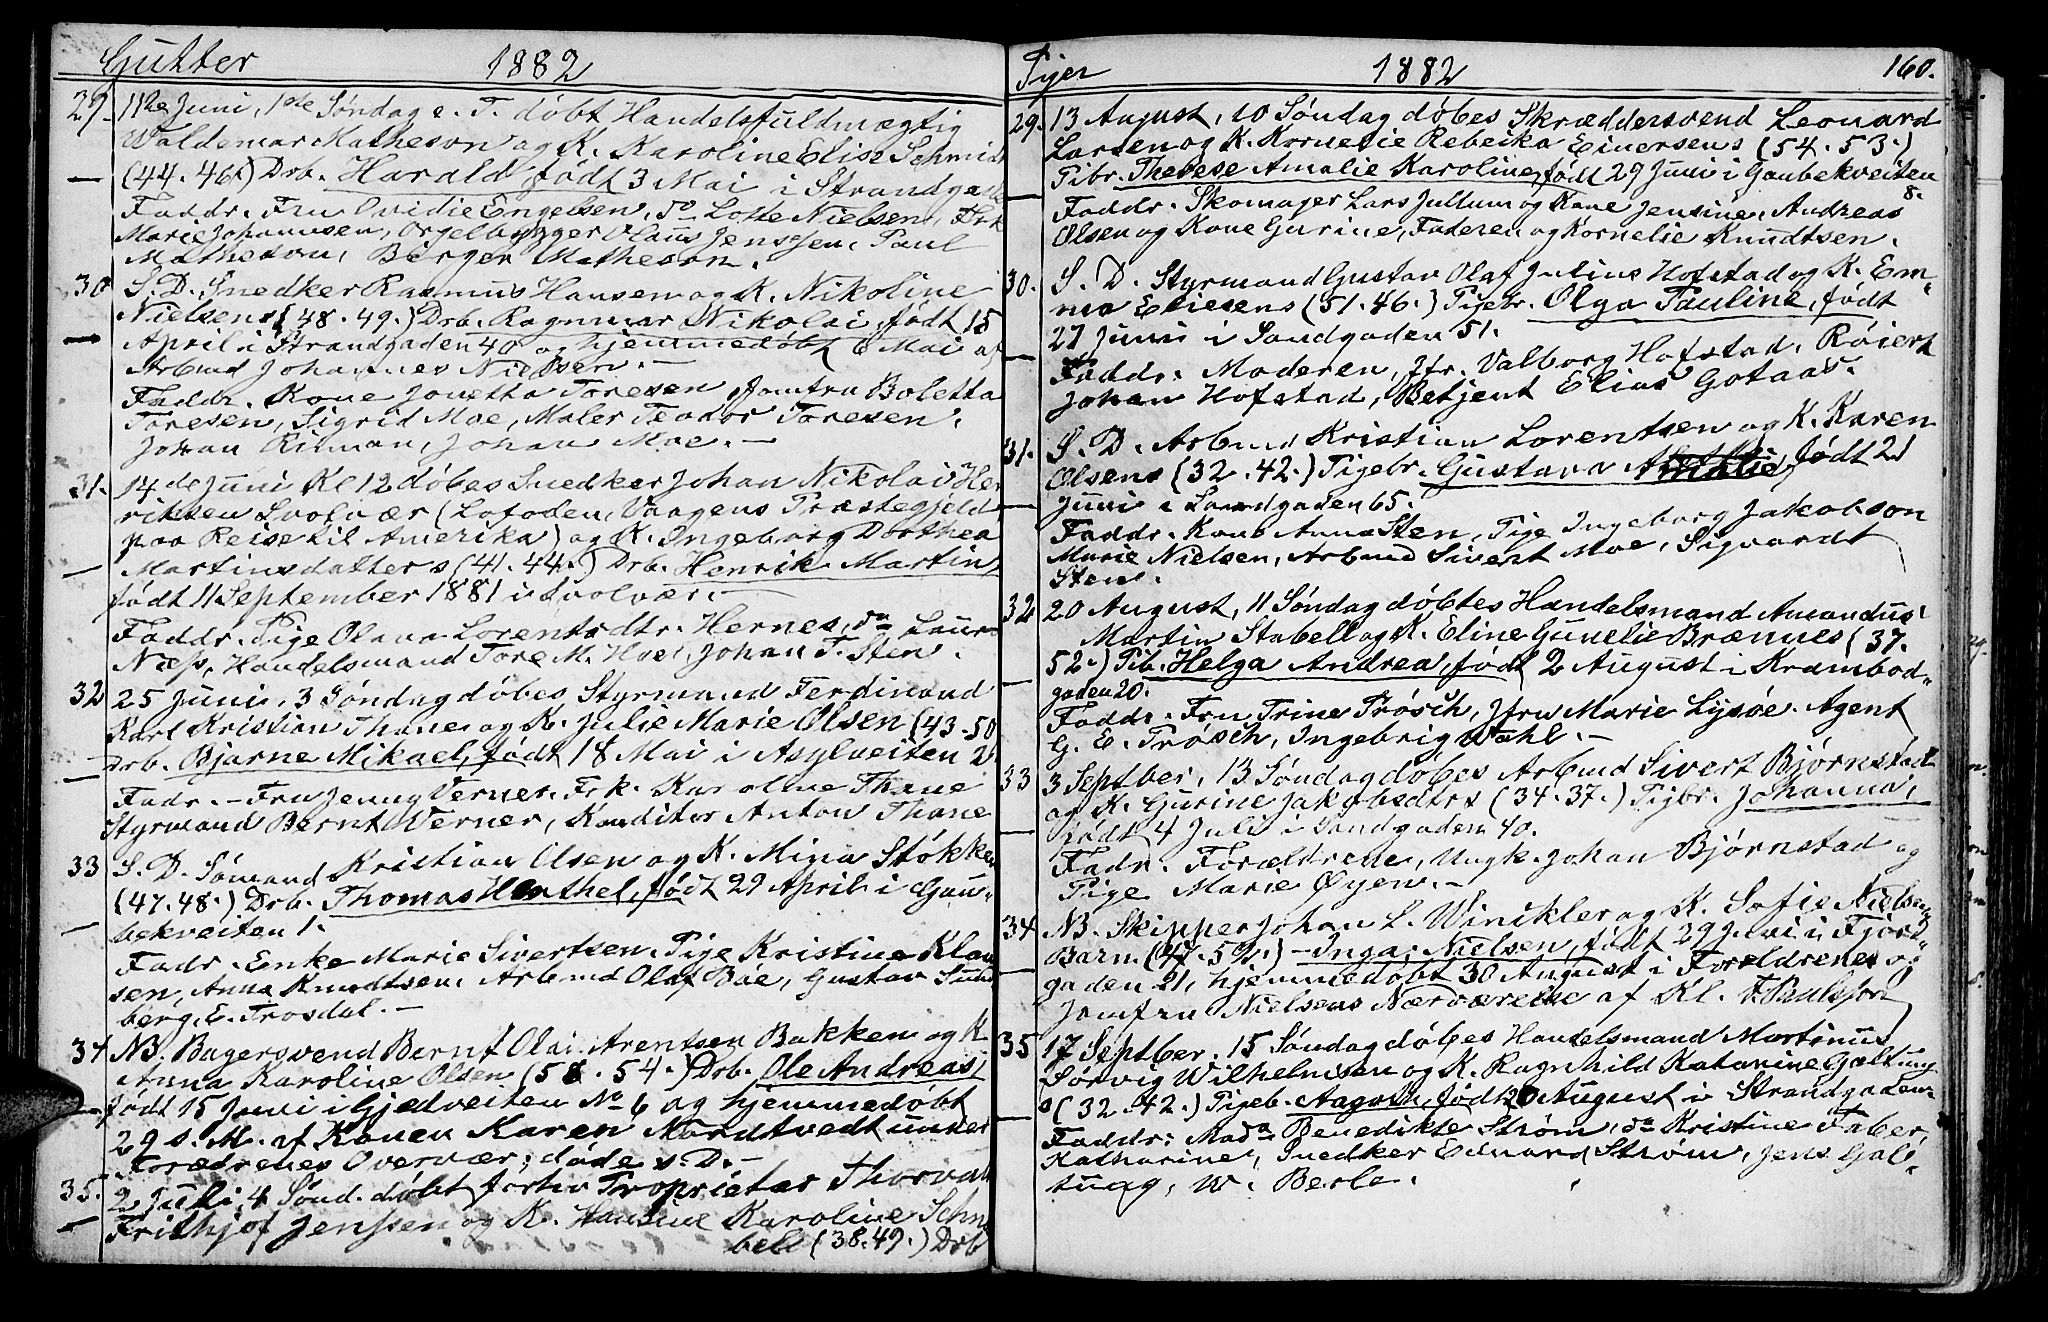 Gutter 1882
29. 11te Juni, 1ste Søndag e. T. døbt Handelsfuldmægtig
Waldemar Matheson og K. Karoline Elise Schmidt
(44. 46.) Drb. Harald født 3 Mai i Strandgaden
Faddr. Fru Ovidie Engelsen, do Lotte Nielsen, Frk
Marie Johannesen, Orgelbygger Olaus Jenssen, Paul
Matheson, Berger Matheson.
30 S. D. Snedker Rasmus Hansen og K. Nikoline
Nielsens (48. 49.) Drb. Ragnvar Nikolai, født 15
April i Strandgaden 40 og hjemmedøbt 6 Mai af
Arbmd Johannes Nielsen. —
Faddr. Kone Jonetta Toresen, Jomfru Boletta
Toresen, Sigrid Moe, Maler Teodor Toresen,
Johan Riiman, Johan Moe. —
31. 14de Juni Kl 12 døbes Snedker Johan Nikolai Hen
riksen Svolvær (Lofoden, Vaagens Præstegjeld
paa Reise til Amerika) og K. Ingeborg Dorthea
Martinsdatters (41. 44.) Drb. Henrik Martin,
født 11 September 1881 i Svolvær. —
Faddr. Pige Olava Lorentsdtr. Hernes, do Laura
Næss, Handelsmand Tore M. Hoel, Johan T. Sten.
32 25 Juni, 3 Søndag døbes Styrmand Ferdinand
Karl Kristian Thane og K. Julie Marie Olsen (43-50
Drb. Bjarne Mikael, født 18 Mai i Asylveiten 2
Fadr. — Fru Jenny Verner. Frk. Karoline Thane
Styrmand Bernt Werner, Konditor Anton Thane
33 S. D. Sømand Kristian Olsen og K. Mina Støkken
(47. 48.) Drb. Thomas Henthel, født 29 April i Gau-
bekveiten 1.
Fadr. Enke Marie Sivertsen, Pige Kristine Klau
sen, Anna Knudtsen, Arbmd Olaf Bøe, Gustav Sund
berg, E. Trosdal. —
34 NB. Bagersvend Bernt Olai Arentsen Bakken og K
Anna Karoline Olsen (58. 54.) Drb. Ole Andreas,
født 15 Juni i Gjedveiten No 6 og hjemmedøbt
29 s. M. af Konen Karen Nordtvedt under
Forædrenes Overvær; døde s. D. —
35. 2 Juli, 4 Sønd. døbt forhv Proprietær Thorvald
Frithjof Jenssen og K. Hansine Karoline Schna
bell (38. 49.) Drb
Piger 1882 160.
29. 13 August, 10 Søndag døbes Skræddersvend Leonard
Larsen og K. Kornelie Rebeika Einersens (54. 53.)
Pibr. Therese Amalie Karoline, født 27 Juni i Gaubekveiten
8.
Faddr. Skomager Lars Jullum og Kone Jensine, Andreas
Olsen og Kone Gurine, Faderen og Kornelie Knudtsen.
30. S. D. Styrmand Gustav Olaf Julius Hofstad og K. Em-
ma Eliesens (51. 46.) Pigebr. Olga Pauline, født
27 Juni i Sandgaden 51.
Faddr. Moderen, Jfr. Valborg Hofstad. Røiert
Johan Hofstad, Betjent Elias Gotaas.
31. S. D. Arbmd Kristian Lorentsen og K. Karen
Olsens (32. 42.) Pigebr. Gustava Amalie, født 21
Juni i Sandgaden 65.
Faddr. Kone Anna Sten, Pige Ingeborg Jakobson
Marie Nielsen, Arbmd Sivert Moe, Sigvardt
Sten.
32 20 August, 11 Søndag døbtes Handelsmand Amandus
Martin Stabell og K. Eline Gunelie Brænnes (37.
52.) Pib. Helga Andrea, født 2 August i Krambod-
gaden 20.
Faddr. Fru Trine Prøsch, Jfru Marie Lysøe. Agent
G. E. Prøsch, Ingebrig Wahl. —
33 3 Septber, 13 Søndag døbes Arbmd Sivert Bjørnstad
og K. Gurine Jakobsdtrs (34. 37.) Pigbr. Johanna,
født 4 Juli i Sandgaden 40.
Fadr. Forældrene, Ungk. Johan Bjørnstad og
Pige Marie Øyen. —
34 NB. Skipper Johan L. Winikler og K. Sofie Nielsens
Barn. (47. 52.) — Inga Nielsen, født 29 Juni i Fjord-
gaden 21, hjemmedøbt 30 August i Forældrenes og
Jomfru Nielsens Nærværelse af Kl. F. Paulsson
35 17 Septber. 15 Søndag døbes Handelsmand Martinus
Sørvig Wilhelmsen og K. Ragnhild Katarine Galtung
s (32. 42.) Pigeb. Aagoth, født 20 August i Strandgaden.
Faddr: Mada Benedikte Strøm, do Kristine Faber,
Katharine, Snedker Edvard Strøm, Jens Gal-
tung, W. Berle.